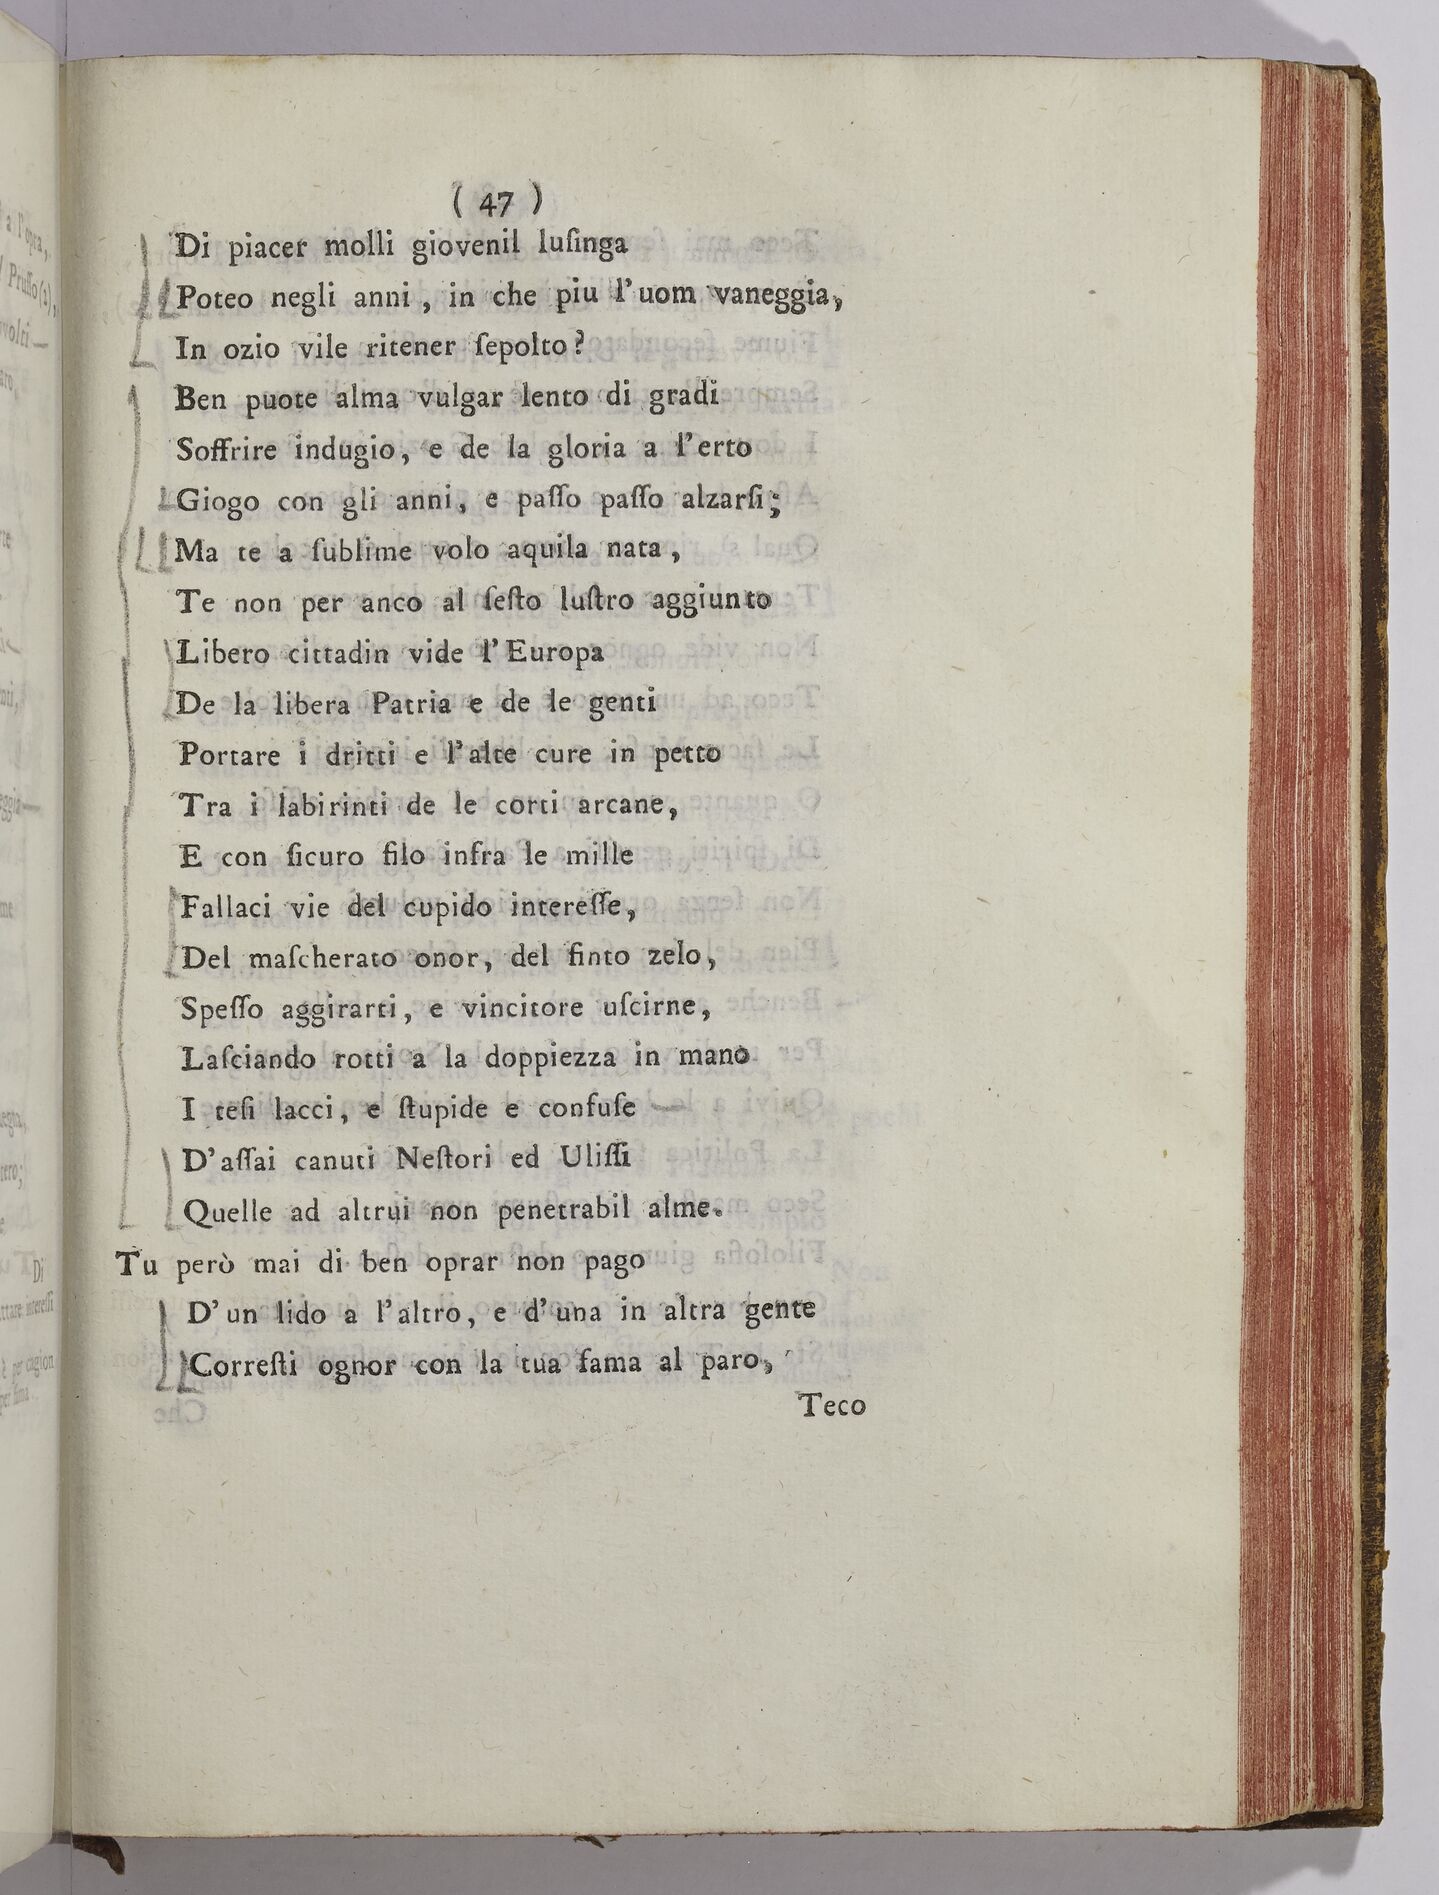 ( 47 )
Di piacer molli giovenil luſinga
Poteo negli anni, in che piu l'uom vaneggia,
In ozio vile ritener ſepolto?
Ben puote alma vulgar lento di gradi
Soffrire indugio, e de la gloria a l'erto
Giogo con gli anni, e paſſo paſſo alzarſi;
Ma te a ſublime volo aquila nata,
Te non per anco al ſeſto luſtro aggiunto
Libero cittadin vide l'Europa
De la libera Patria e de le genti
Portare i dritti e l'alte cure in petto
Tra i labirinti de le corti arcane,
E con ſicuro filo infra le mille
Fallaci vie del cupido intereſſe,
Del maſcherato onor, del finto zelo,
Speſſo aggirarti, e vincitore uſcirne,
Laſciando rotti a la doppiezza in mano
I teſi lacci, e ſtupide e confuſe
D'aſſai canuti Neſtori ed Uliſſi
Quelle ad altrui non penetrabil alme.
Tu però mai di ben oprar non pago
D'un lido a l'altro, e d'una in altra gente
Correſti ognor con la tua fama al paro,
Teco